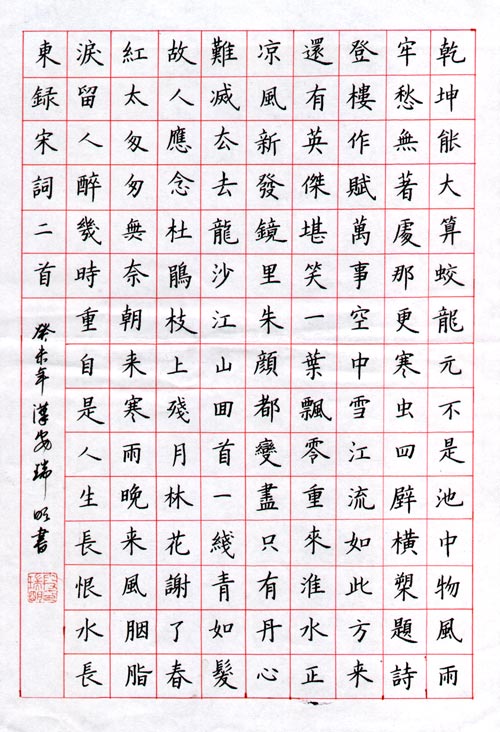 乾坤能大算蛟龍元不是池中物風雨
牢愁無著處那更寒虫四壁橫槊題詩
登樓作賦萬事空中雪江流如此方来
還有英傑堪笑一葉飄零重來淮水正
凉風新發鏡里朱顔都變盡只有丹心
難滅厺去龍沙江山囬首一綫青如髮
故人應念杜鵑枝上殘月林花謝了春
紅太匆匆無奈朝来寒雨晚来風胭脂
淚留人醉幾時重自是人生長恨水長
東録宋詞二首
癸未年漢安瑞明書